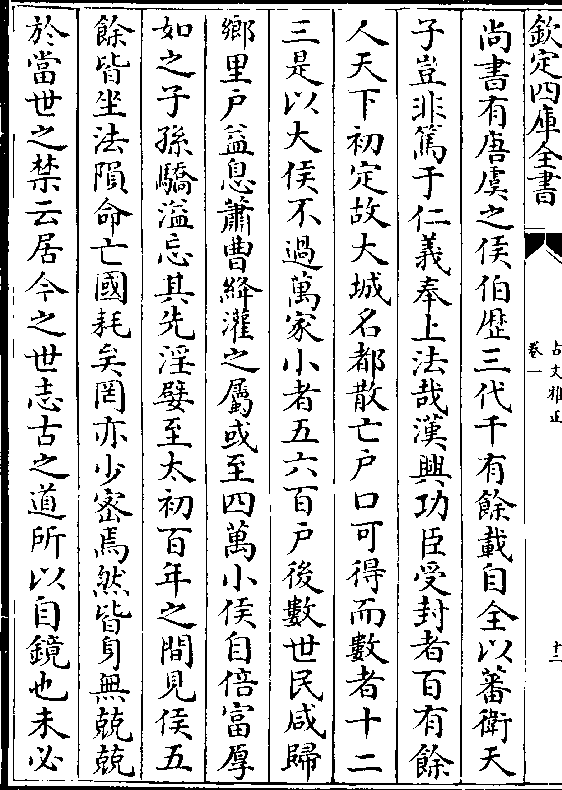 欽定四庫全書
古文雅正
卷一
十二
尚書有唐虞之侯伯歴三代千有餘載自全以蕃衛天
子豈非篤于仁義奉上法哉漢興功臣受封者百有餘
人天下初定故大城名都散亡户口可得而數者十二
三是以大侯不過萬家小者五六百户後數世民咸歸
鄉里户益息蕭曹絳灌之屬或至四萬小侯自倍富厚
如之子孫驕溢忘其先淫嬖至太初百年之間見侯五
餘皆坐法隕命亡國耗矣罔亦少宻焉然皆身無兢兢
於當世之禁云居今之世志古之道所以自鏡也未必